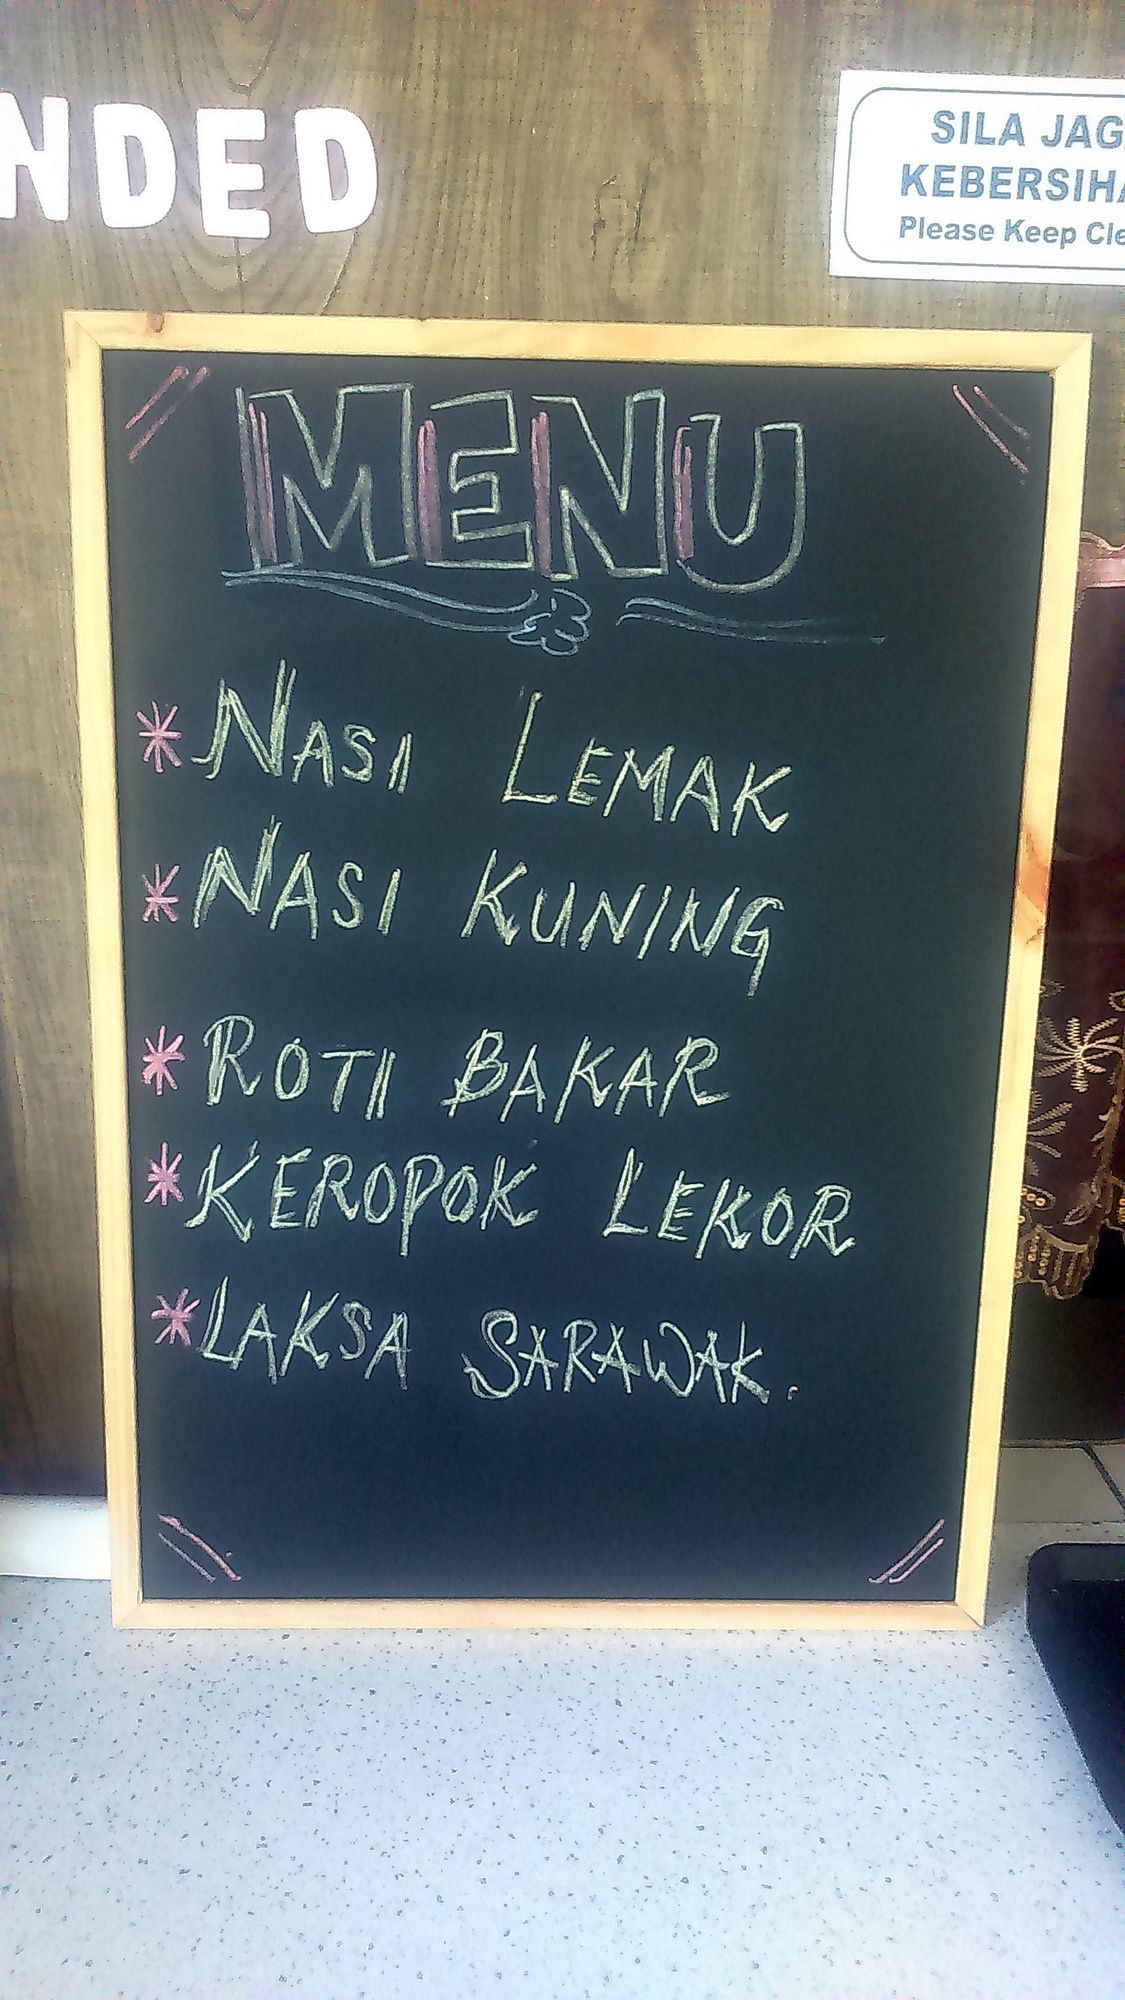 NDED
SILA JAG
KEBERSIHA
Please Keep Cle
MENU
* NASI LEMAK
* NASI KUNING
* ROTI BAKAR
* KEROPOK LEKOR
* LAKSA SARAWAK.